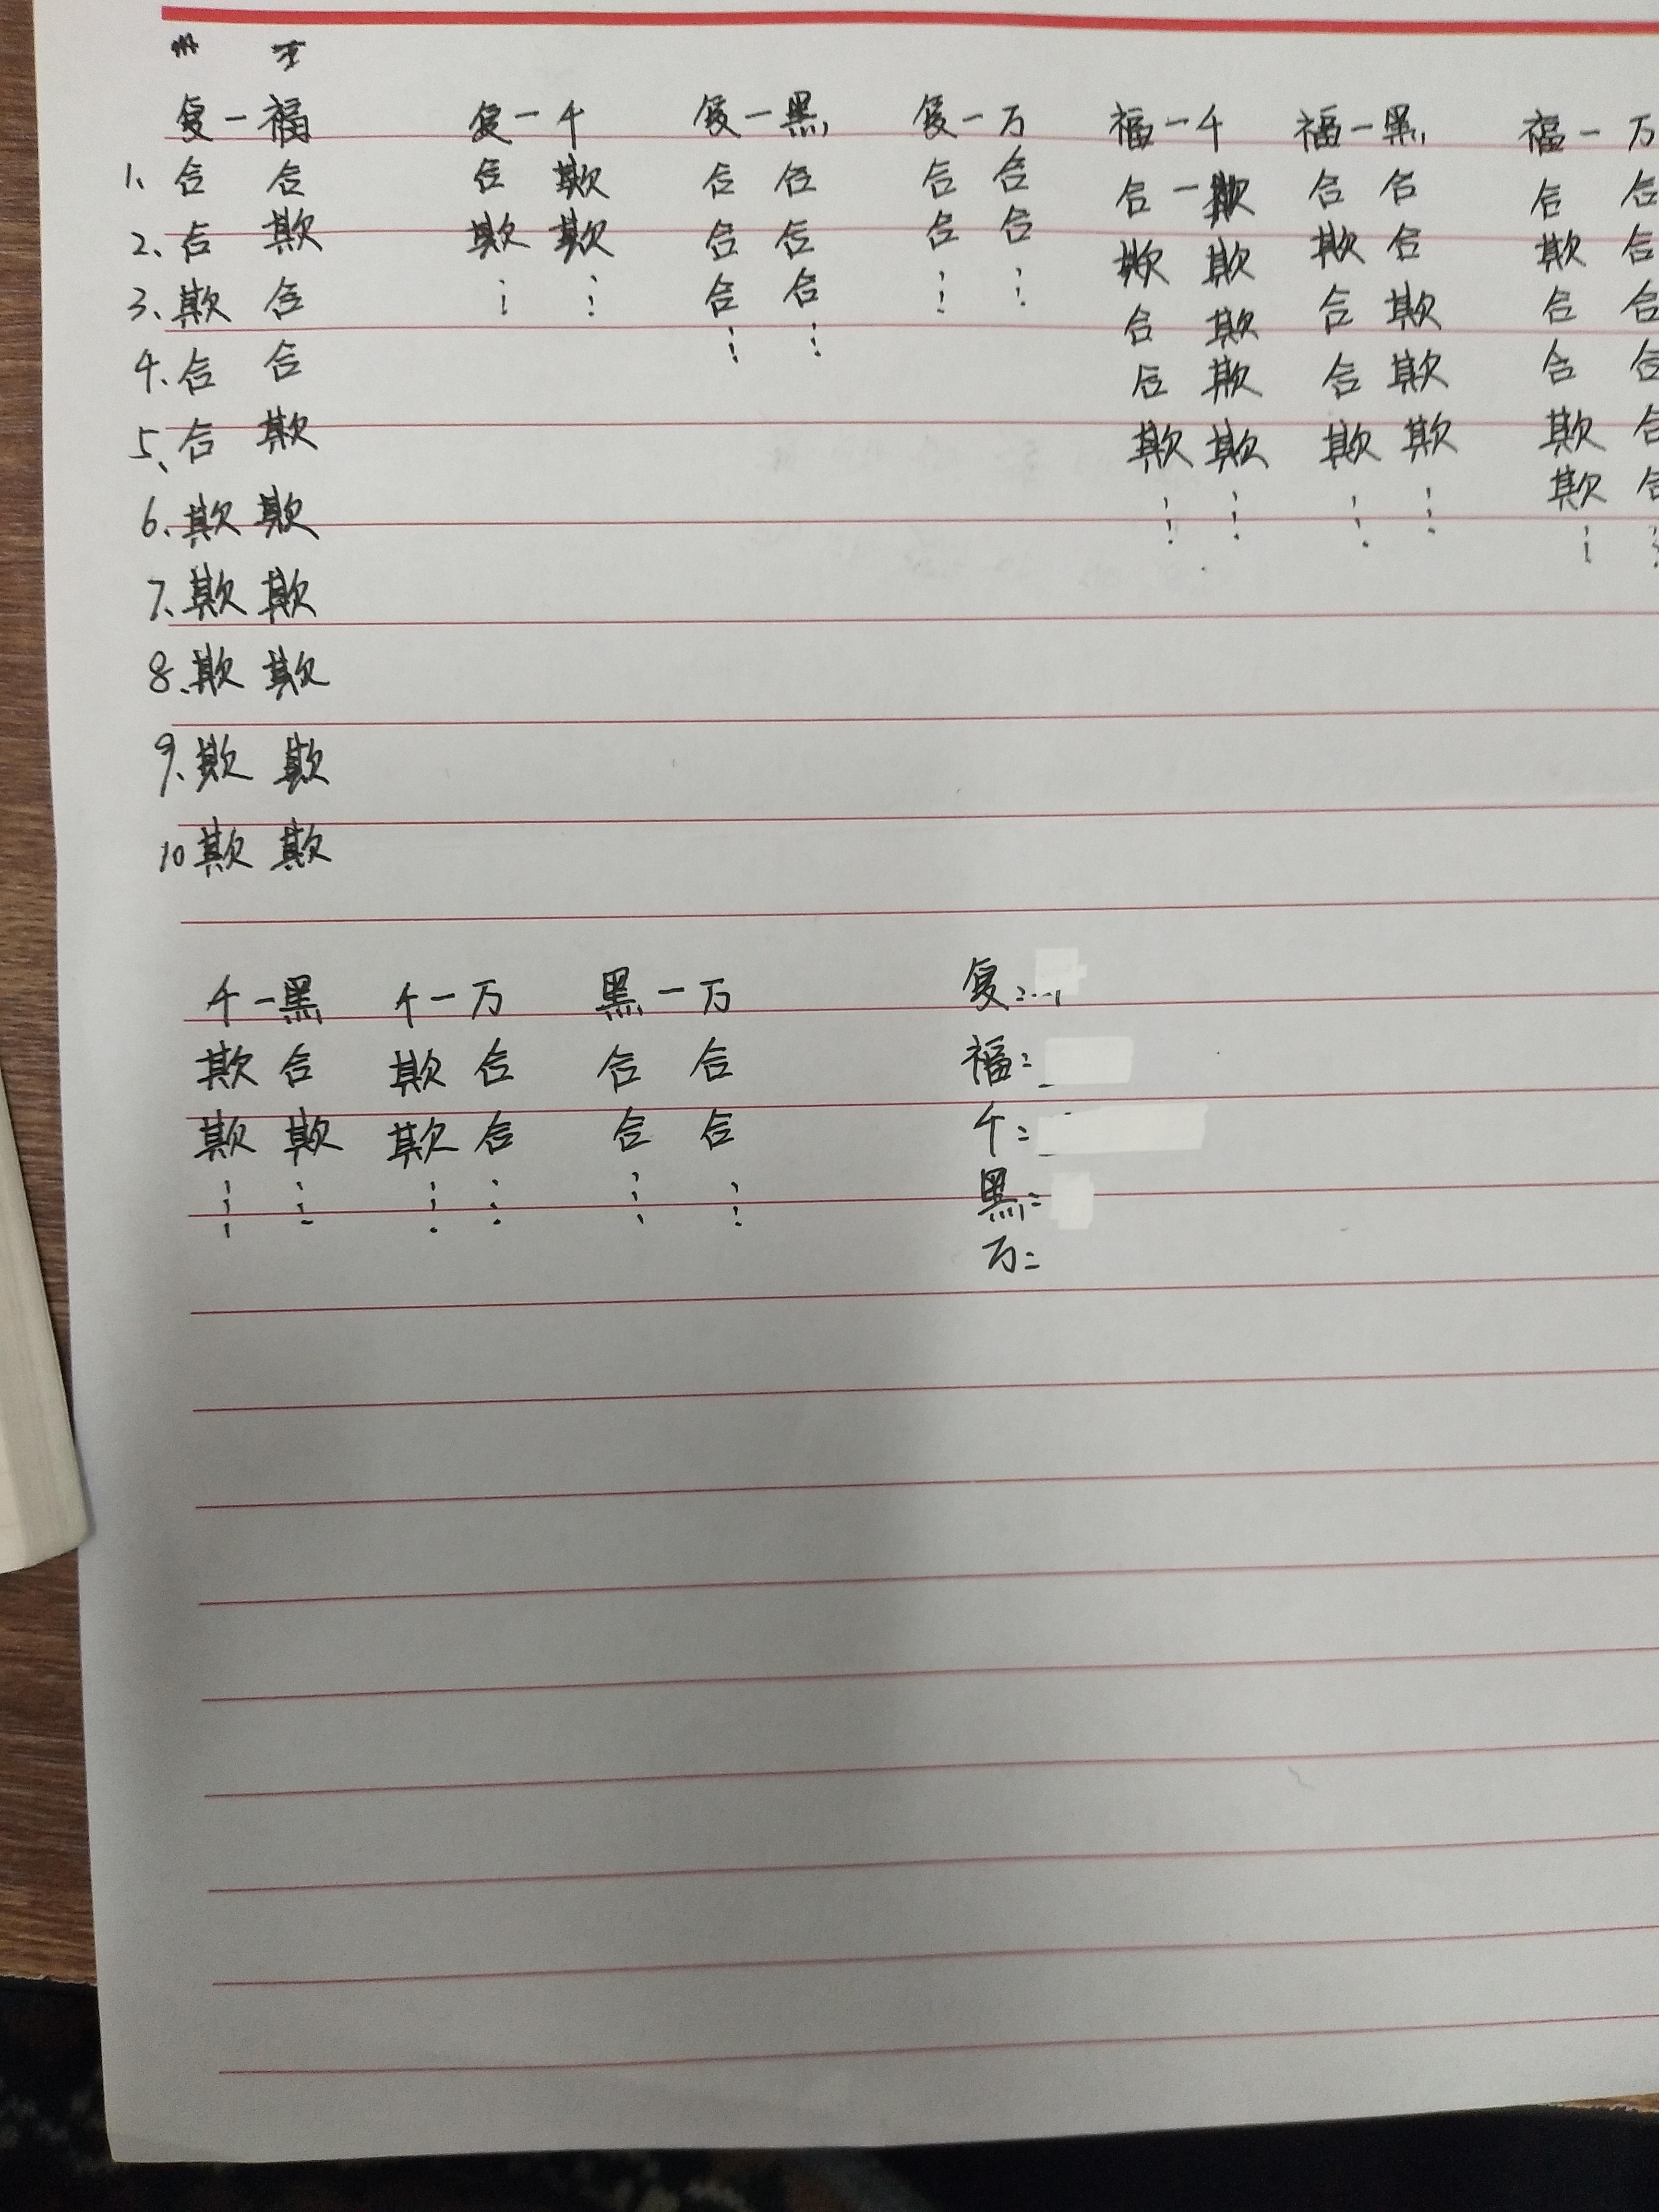 复一福 复一千 复一黑 复一万 福一千 福一黑 福一万
1、合 合 合 欺 合 合 合 合 合一欺 合 合 合 合
2、合 欺 欺 欺 合 合 合 合 欺 欺 欺 合 欺 合
3、欺 合 合 合 合 欺 合 欺 合 合
4、合 合 合 欺 合 欺 合 合
5、合 欺 欺 欺 欺 欺 欺 合
6、欺 欺 欺 合
7、欺 欺
8、欺 欺
9、欺 欺
10 欺 欺
千一黑 千一万 黑一万 复:
欺 合 欺 合 合 合 福:
欺 欺 欺 合 合 合 千:
黑:
万: